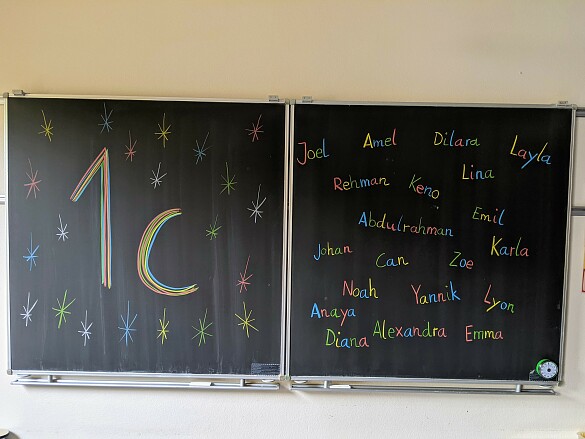 1c
Joel Amel Dilara Layla
Rehman Keno Lina
Abdulrahman Emil
Johan Can Zoe Karla
Noah Yannik Lyon
Anaya
Diana Alexandra Emma